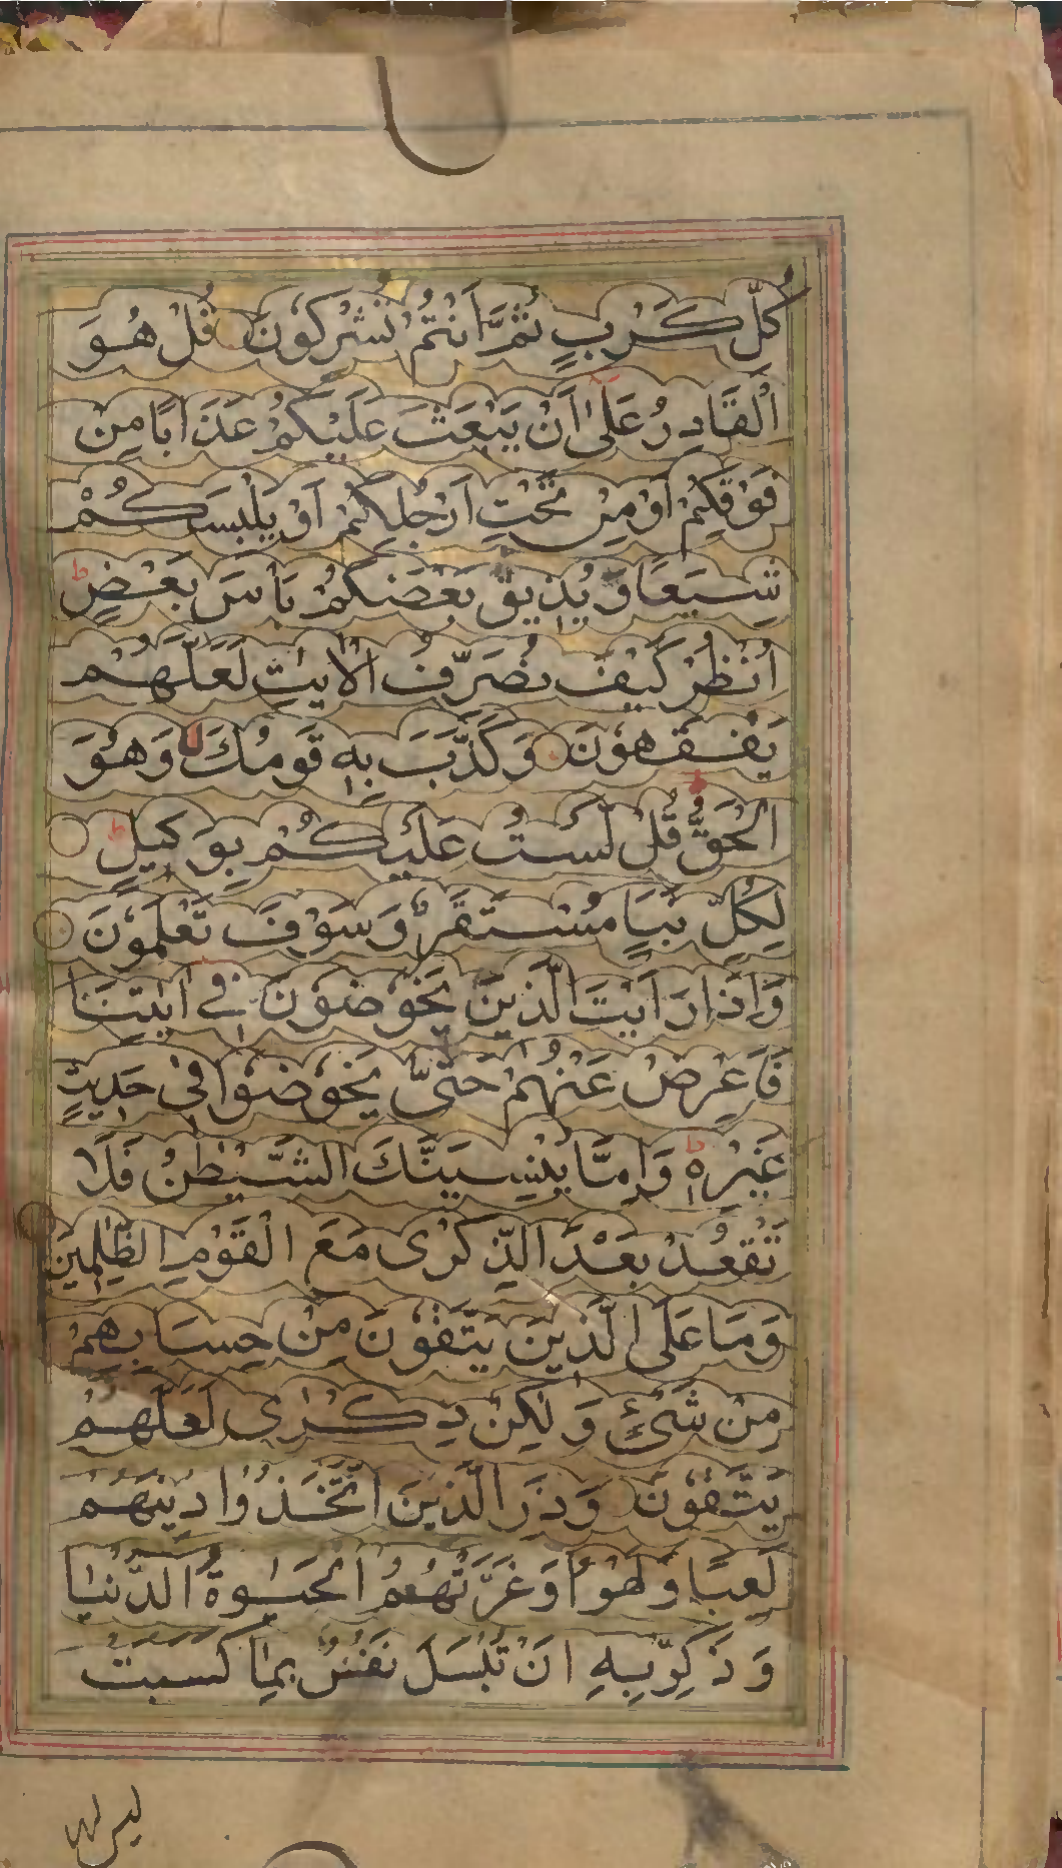 كُلِّ كَرْبٍ ثُمَّ اَنْتُمْ تُشْرِكُوْنَ قُلْ هُوَ
الْقَادِرُ عَلٰى اَنْ يَبْعَثَ عَلَيْكُمْ عَذَابًا مِنْ
فَوْقِكُمْ اَوْ مِنْ تَحْتِ اَرْجُلِكُمْ اَوْ يَلْبِسَكُمْ
شِيَعًا وَّيُذِيْقَ بَعْضَكُمْ بَاْسَ بَعْضٍ ط
اُنْظُرْ كَيْفَ نُصَرِّفُ الْاٰيٰتِ لَعَلَّهُمْ
يَفْقَهُوْنَ وَكَذَّبَ بِهٖ قَوْمُكَ وَهُوَ
الْحَقُّ ط قُلْ لَسْتُ عَلَيْكُمْ بِوَكِيْلٍ ط
لِكُلِّ نَبَاٍ مُسْتَقَرٌّ وَسَوْفَ تَعْلَمُوْنَ
وَاِذَا رَاَيْتَ الَّذِيْنَ يَخُوْضُوْنَ فِيْ اٰيٰتِنَا
فَاَعْرِضْ عَنْهُمْ حَتّٰى يَخُوْضُوْا فِيْ حَدِيْثٍ
غَيْرِهٖ ط وَاِمَّا يُنْسِيَنَّكَ الشَّيْطٰنُ فَلَا
تَقْعُدْ بَعْدَ الذِّكْرٰى مَعَ الْقَوْمِ الظّٰلِمِيْنَ
وَمَا عَلَى الَّذِيْنَ يَتَّقُوْنَ مِنْ حِسَابِهِمْ
مِنْ شَيْءٍ وَلٰكِنْ ذِكْرٰى لَعَلَّهُمْ
يَتَّقُوْنَ وَذَرِ الَّذِيْنَ اتَّخَذُوْا دِيْنَهُمْ
لَعِبًا وَلَهْوًا وَغَرَّتْهُمُ الْحَيٰوةُ الدُّنْيَا
وَذَكِّرْ بِهٖ اَنْ تُبْسَلَ نَفْسٌ بِمَا كَسَبَتْ
ليس لها